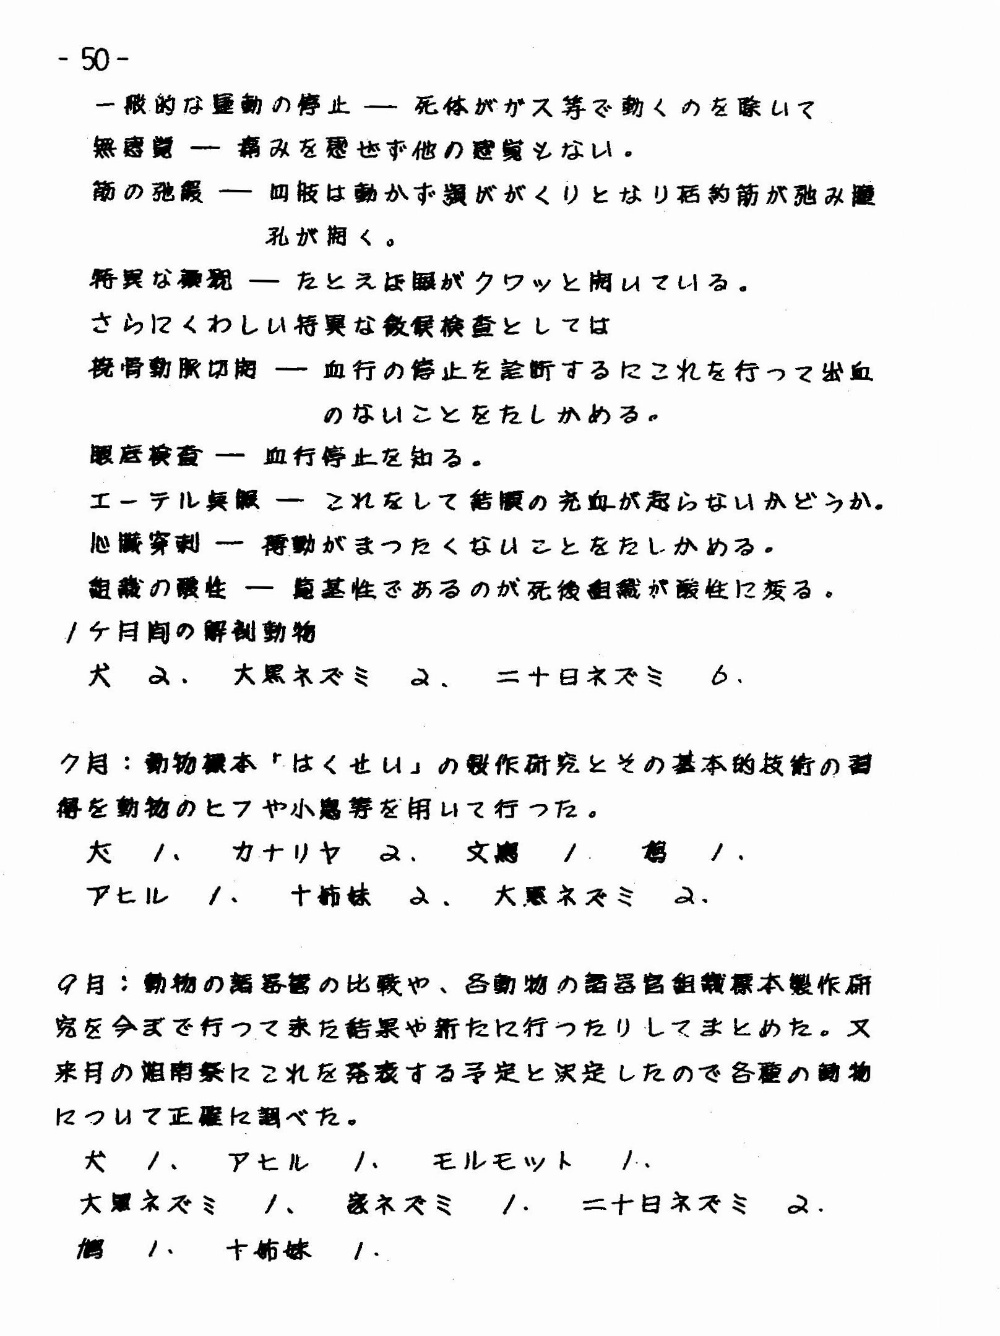 - 50 -
一般的な運動の停止 — 死体がガス等で動くのを除いて
無感覚 — 痛みを感ぜず他の感覚もない。
筋の弛緩 — 四肢は動かず顎ががくりとなり括約筋が弛み瞳
孔が開く。
特異な無視 — たとえば眼がクワッと開いている。
さらにくわしい特異な徴候検査としては
撓骨動脈切開 — 血行の停止を診断するにこれを行って出血
のないことをたしかめる。
眼底検査 — 血行停止を知る。
エーテル点眼 — これをして結膜の充血が起らないかどうか。
心臓穿刺 — 搏動がまったくないことをたしかめる。
組織の酸性 — 塩基性であるのが死後組織が酸性に変る。
1ケ月間の解剖動物
犬 2. 大黒ネズミ 2、 二十日ネズミ 6.
7月：動物標本「はくせい」の製作研究とその基本的技術の習
得を動物のヒフや小鳥等を用いて行った。
犬 1、 カナリヤ 2. 文鳥 1. 鳩 1.
アヒル 1. 十姉妹 2、 大黒ネズミ 2.
9月：動物の諸器官の比較や、各動物の諸器官組織標本製作研
究を今まで行って来た結果や新たに行ったりしてまとめた。又
来月の湘南祭にこれを発表する予定と決定したので各種の動物
について正確に調べた。
犬 1、 アヒル 1. モルモット 1.
大黒ネズミ 1、 家ネズミ 1. 二十日ネズミ 2.
鳩 1. 十姉妹 1.